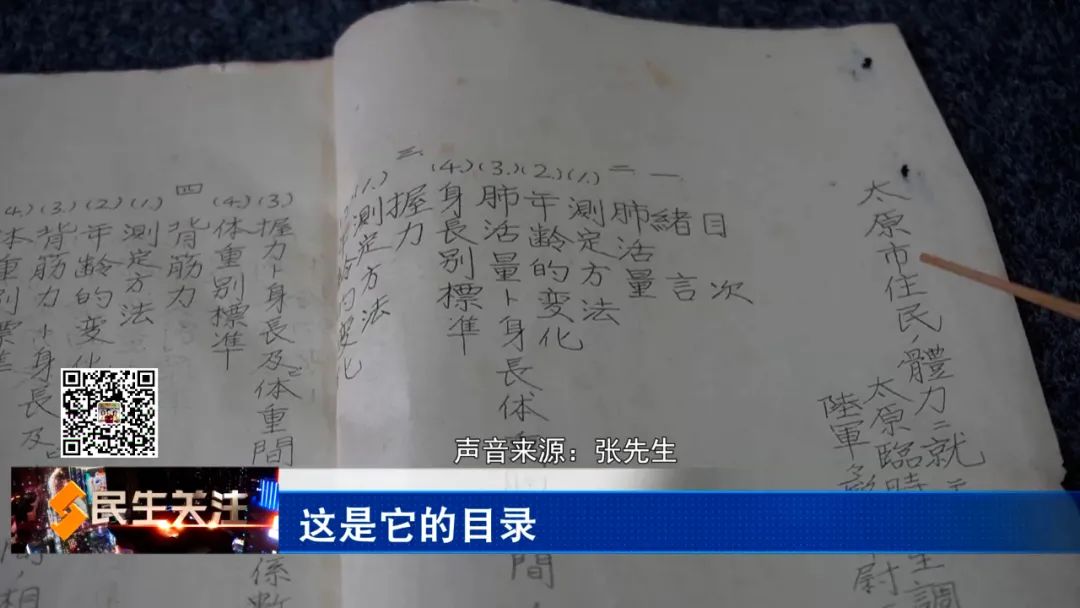 太原市住民ノ體力ニ就
太原臨時
陸軍
尉
調
目次
一 緒言
二 肺活量
(1.) 測定方法
(2.) 年齡的変化
(3.) 肺活量ト身長体
間
(4.) 身長別標準
三 握力
(1.) 測定方法
(3.) 握力ト身長及体重間
係数
(4.) 体重別標準
四 背筋力
(1.) 測定方法
(2.) 年齡的变化
(3.) 背筋力ト身長及
(4.) 体重別標準
声音来源：张先生
民生关注
这是它的目录